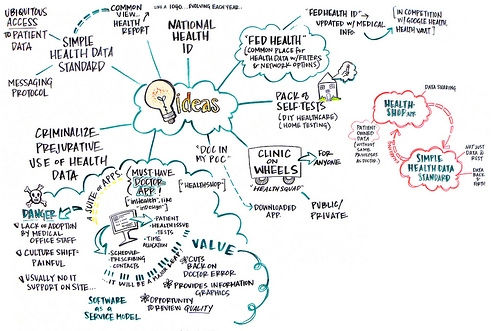 UBIQUITOUS
ACCESS
TO PATIENT
DATA
SIMPLE
HEALTH DATA
STANDARD
MESSAGING
PROTOCOL
COMMON
VIEW...
HEALTH
REPORT
LIKE A LOGO... EVOLVING EACH YEAR...
NATIONAL
HEALTH
ID
"FED HEALTH"
(COMMON PLACE for
HEALTH DATA w/FILTERS
& NETWORK OPTIONS)
"FEDHEALTH ID"
UPDATED w/ MEDICAL
INFO
IN COMPETITION
w/ GOOGLE HEALTH,
HEALTH VAULT
ideas
PACK of
SELF-TESTS
(DIY HEALTHCARE)
(HOME TESTING)
CRIMINALIZE
PREJURATIVE
USE of HEALTH
DATA
"DOC IN
MY POC"
CLINIC
ON
WHEELS
"HEALTH SQUAD"
FOR
ANYONE
PUBLIC/
PRIVATE
DOWNLOADED APP
DATA SHARING
HEALTH-
SHOP APP
PATIENT
OWNED
DATA
(WITHOUT
SAME
PRIVILEGES
AS DOCTOR)
SIMPLE HEALTH DATA
STANDARD
NOT JUST
DATA @
REST
DATA
BACK &
FORTH
A SUITE of APPS
MUST-HAVE
DOCTOR
APP!
["inHealth", like
"inDesign"]
["HEALTHSHOP"]
PATIENT
HEALTH ISSUE
TESTS
TIME
ALLOCATION
SCHEDULER
PRESCRIBING
CONTACTS
...IT WILL BE A MAJOR LEAP!
DANGER
LACK of ADOPTION
BY MEDICAL
OFFICE STAFF
CULTURE SHIFT-
PAINFUL
USUALLY NO IT
SUPPORT ON SITE...
VALUE
CUTS
BACK ON
DOCTOR ERROR
PROVIDES INFORMATION
GRAPHICS
OPPORTUNITY
TO REVIEW QUALITY
SOFTWARE
AS A
SERVICE MODEL